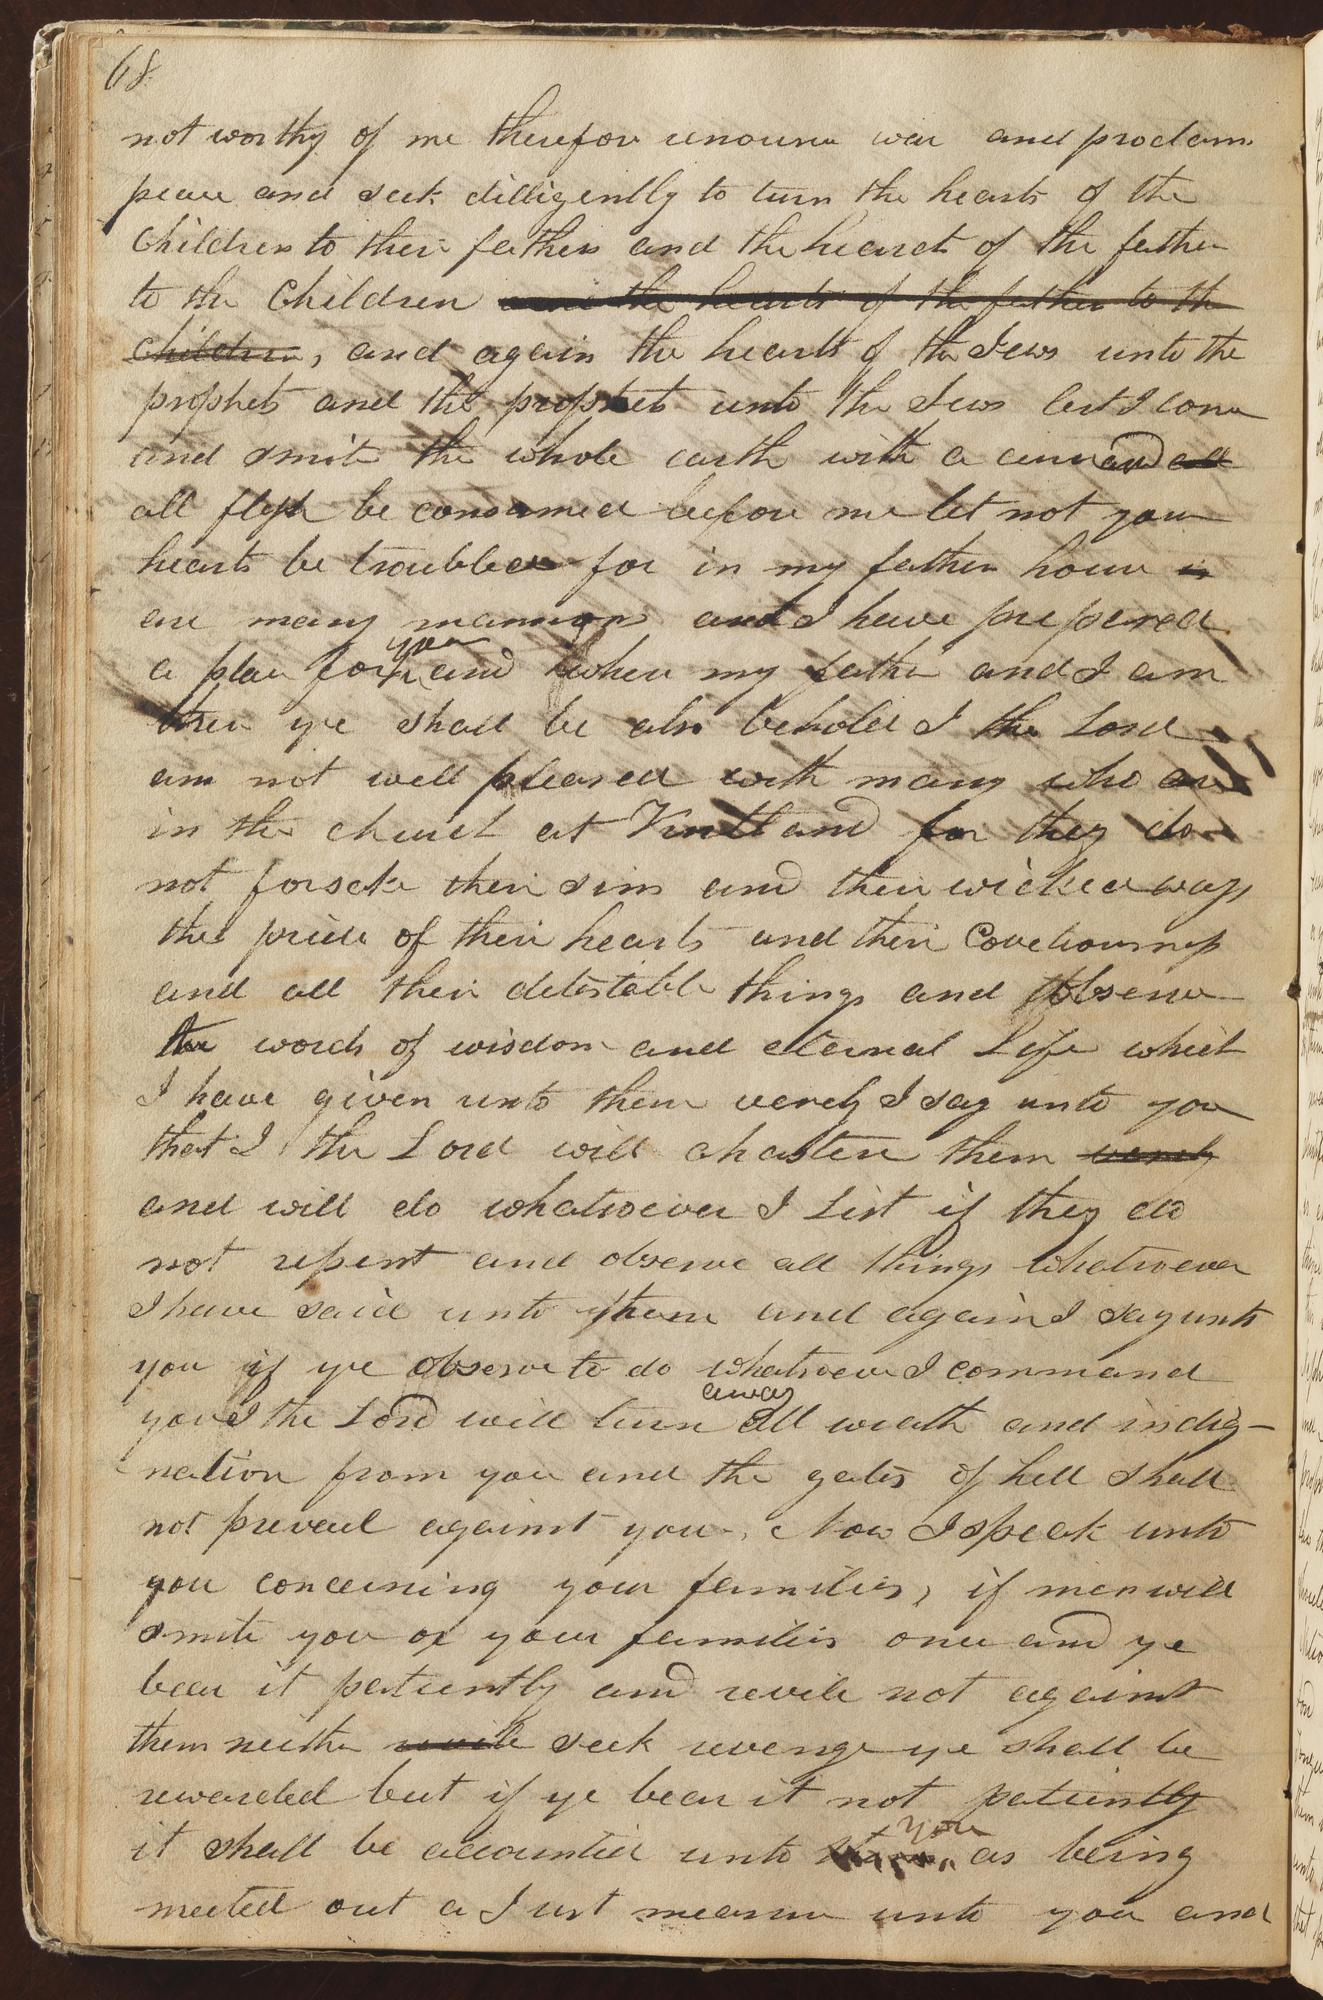 68
not worthy of me therefore renounce war and proclaim
peace and seek dilligently to turn the hearts of the
Children to their fathers and the hearts of the father
to the Children and the hearts of the father to the
Children, and again the hearts of the Jews unto the
prophets and the prophets unto the Jews lest I come
and smite the whole earth with a curse and all
all flesh be consumed before me let not your
hearts be troubled for in my father house is
are many mansions and I have prepared
a place for you and where my father and I am
there ye shall be also behold I the Lord
am not well pleased with many who are
in the church at Kirtland for they do
not forsake their sins and their wicked ways
the pride of their hearts and their Covetousness
and all their detestable things and observe
the words of wisdom and eternal Life which
I have given unto them verely I say unto you
that I the Lord will chasten them verely
and will do whatsoever I List if they do
not repent and observe all things whatsoever
I have said unto them and again I say unto
you if ye observe to do whatsoever I command
you I the Lord will turn away all wrath and indig-
nation from you and the gates of hell shall
not prevail against you. Now I speak unto
you concerning your families, if men will
smite you or your families once and ye
bear it patiently and revile not against
them neither revile seek revenge ye shall be
rewarded but if ye bear it not patiently
it shall be accounted unto you as being
meeted out a Just measure unto you and